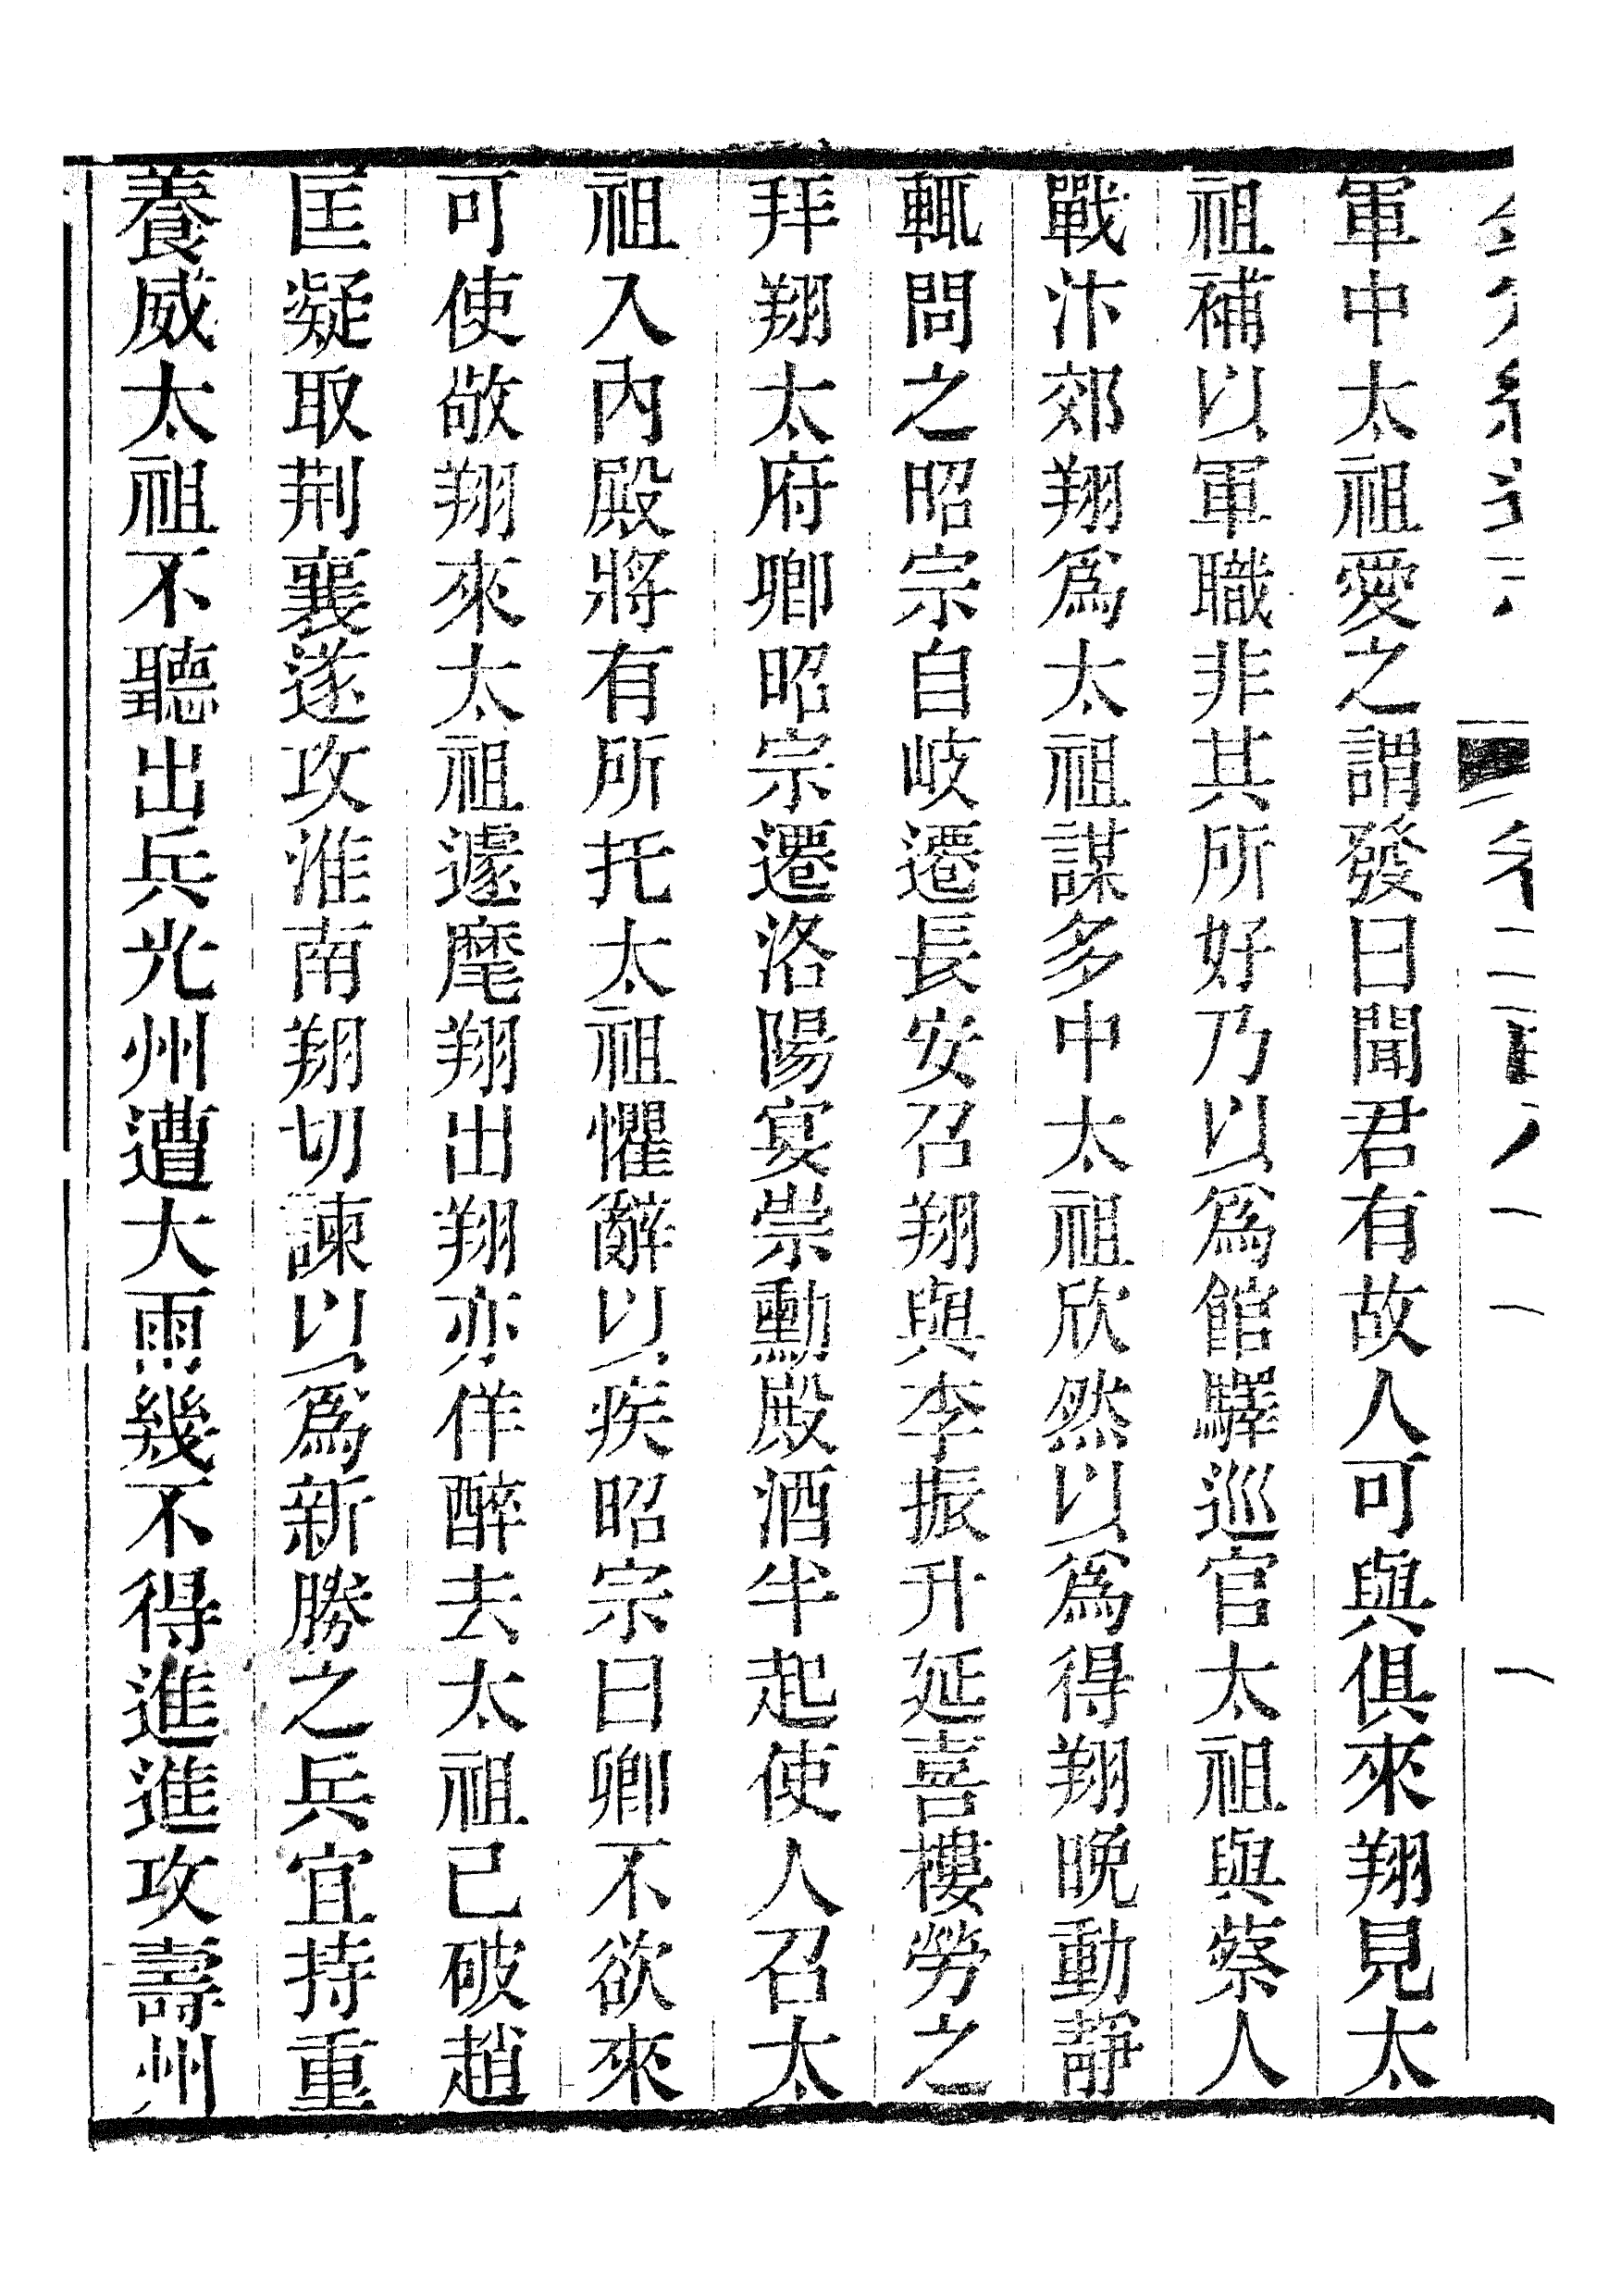 軍中太祖愛之謂發曰聞君有故人可與俱來翔見太
祖補以軍職非其所好乃以為館驛巡官太祖與蔡人
戰汴郊翔為太祖謀多中太祖欣然以為得翔晚動靜
輒問之昭宗自岐遷長安召翔與李振升延喜樓勞之
拜翔太府卿昭宗遷洛陽宴崇勳殿酒半起使人召太
祖入內殿將有所托太祖懼辭以疾昭宗曰卿不欲來
可使敬翔來太祖遽麾翔出翔亦佯醉去太祖已破趙
匡凝取荆襄遂攻淮南翔切諫以為新勝之兵宜持重
養威太祖不聽出兵光州遭大雨幾不得進進攻壽州